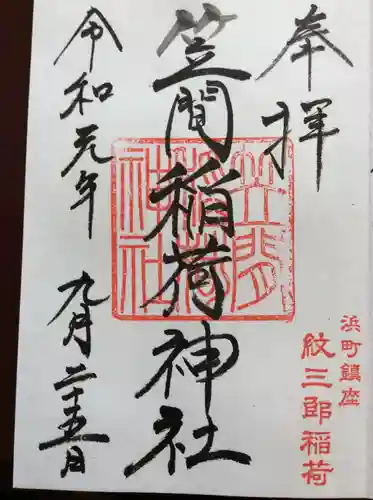 奉拝
浜町鎮座
紋三郎稲荷
笠間稲荷神社
笠間稲荷神社
令和元年
九月二十五日